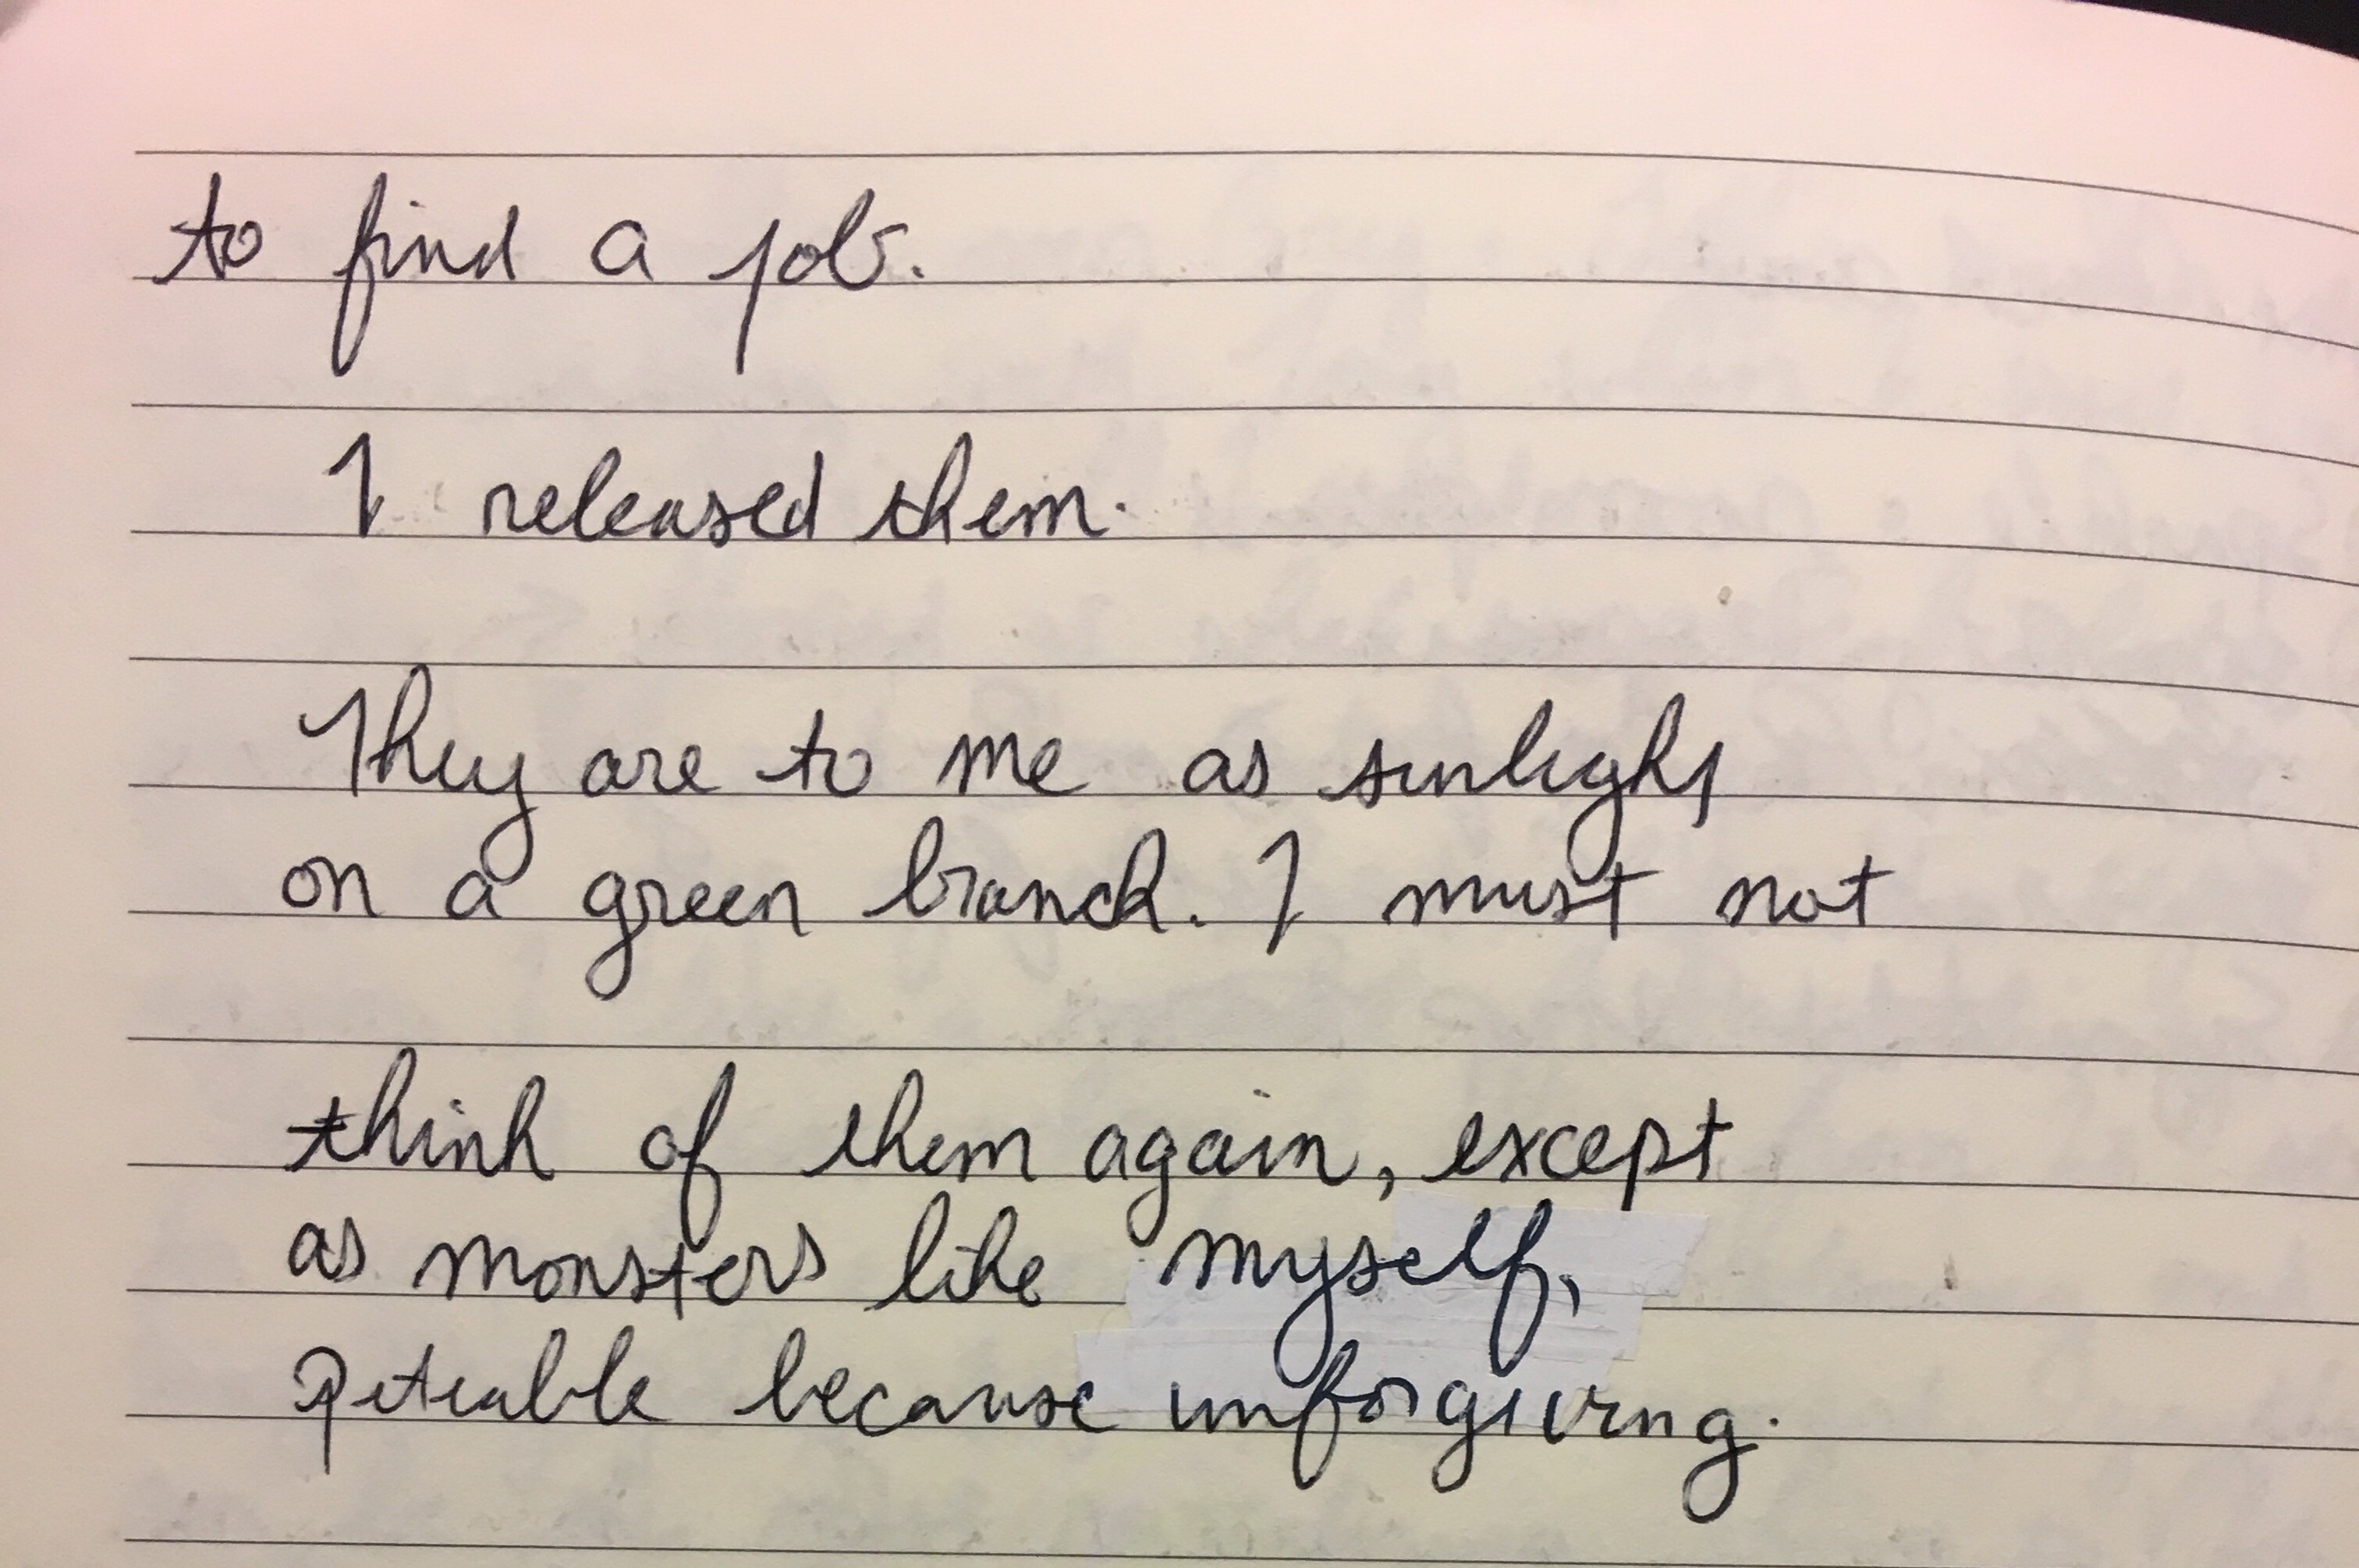 to find a job.
I released them.
They are to me as sunlight
on a green branch. I must not
think of them again, except
as monsters like myself,
Piteable because unforgiving.